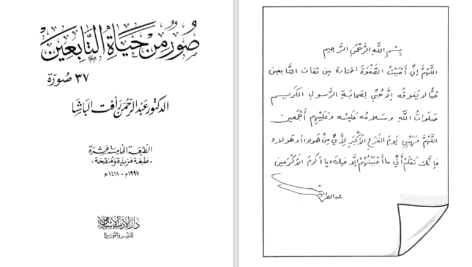 صُوَرٌ مِنْ حَيَاةِ التَّابِعِينَ
٣٧ صُورَة
الدكتور عَبد الرَّحمن رَأفت البَاشَا
الطَّبعَة الخَامِسَة عَشرَة
طَبعَة مَزيدَة وَمُنَقَّحَة
١٩٩٧م - ١٤١٨ه
دار الأدب الإسلامي
للنشر والتوزيع
بِسْمِ اللَّهِ الرَّحْمَنِ الرَّحِيمِ
اللَّهُمَّ إِنِّي أَحْبَبْتُ الصَّفْوَةَ المُخْتَارَةَ مِنْ ثِقَاتِ التَّابِعِينَ
حُبًّا لَا يَفُوقُهُ إِلَّا حُبِّي لِصَحَابَةِ الرَّسُولِ الكَرِيمِ
صَلَوَاتُ اللَّهِ وَسَلَامُهُ عَلَيْهِ وَعَلَيْهِمْ أَجْمَعِينَ
اللَّهُمَّ فَهَبْنِي يَوْمَ الفَزَعِ الأَكْبَرِ لِأَيٍّ مِنْ هَؤُلَاءِ أَوْ هَؤُلَاءِ
فَإِنَّكَ تَعْلَمُ أَنِّي مَا أَحْبَبْتُهُمْ إِلَّا فِيكَ يَا أَكْرَمَ الأَكْرَمِينَ